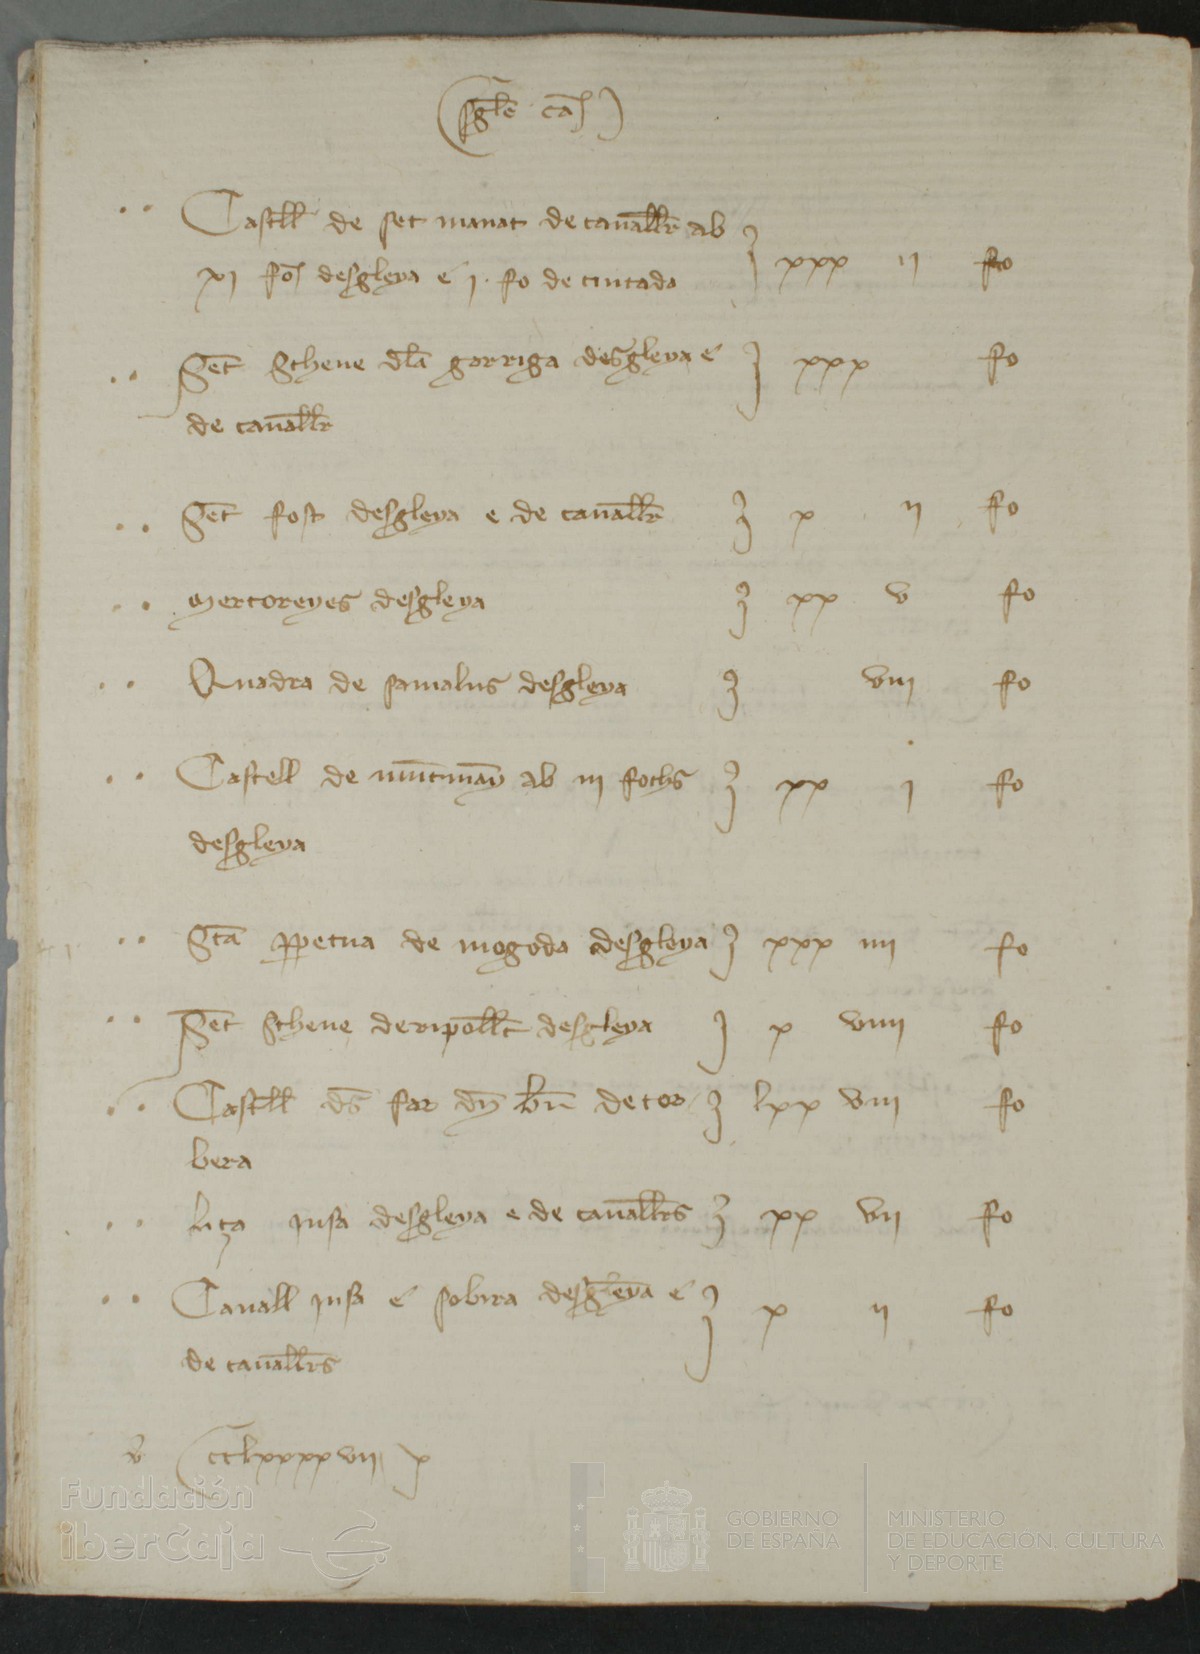 sglē cās
Castell de set manat de cauallr ab
xi fos desgleya e j. fo de ciutada ] xxx ii fo
Sēt Stheue dla garriga desgleya e ] xxx fo
de cauallr
Sēt fost desgleya e de cauallr ] x ii fo
Mertoreyes desgleya ] xx v fo
Quadra de samalus desgleya ] viii fo
Castell de muntmany ab iii fochs ] xx j fo
desgleya
Stā ppetua de mogoda desgleya ] xxx iiii fo
Sēt Stheue de ripollt desgleya ] x viiii fo
Castell des far dn bn de cor ] lxx viii fo
bera
liça jusa desgleya e de cauallrs ] xx vii fo
Canall jusa e sobira desgleya e ] x ii fo
de cauallrs
v cclxxxxvii x
Fundación
iberCaja
GOBIERNO
DE ESPAÑA
MINISTERIO
DE EDUCACIÓN, CULTURA
Y DEPORTE